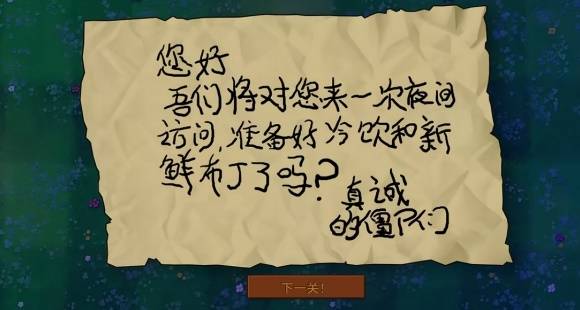 您好
吾们将对您来一次夜间
访问,准备好冷饮和新
鲜布丁了吗?
真诚
的僵尸们
下一关!